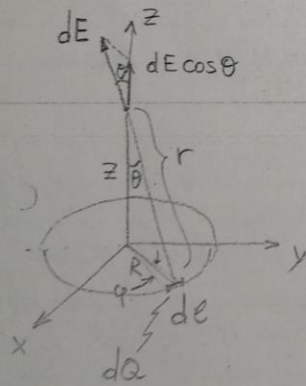 z
dE
θ
dE cosθ
z
θ
r
y
R
φ
dl
x
dQ